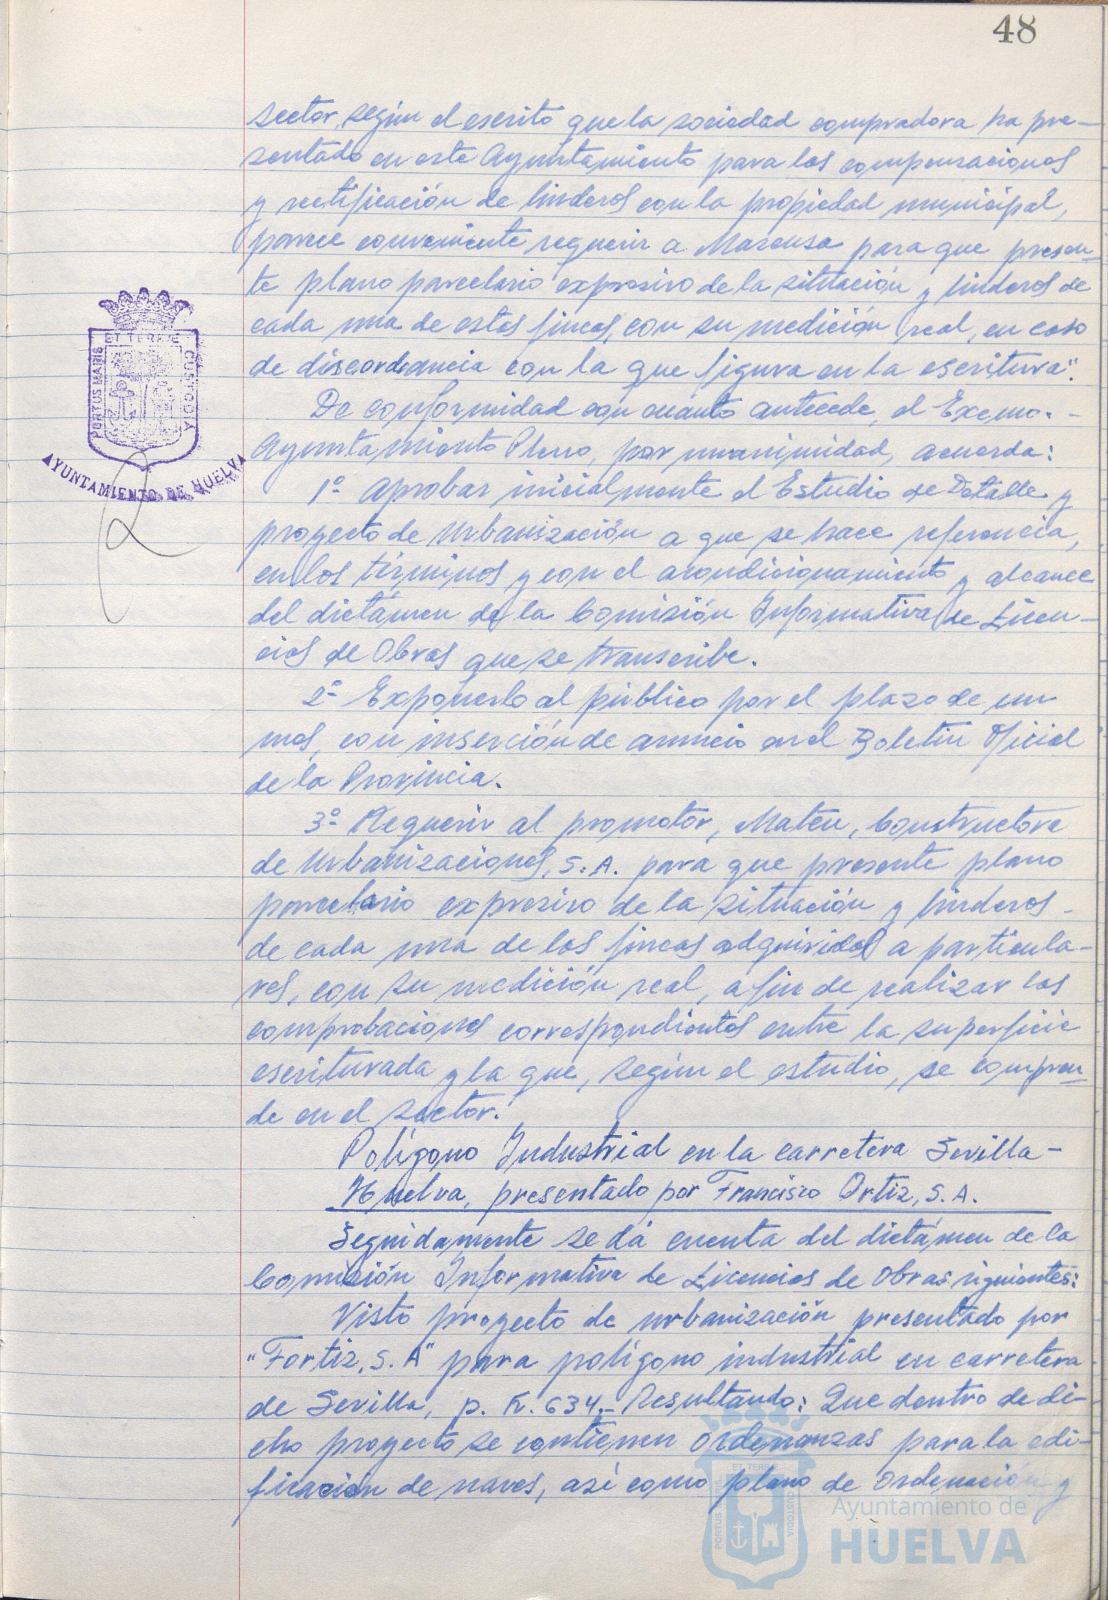 48
sector, según el escrito que la sociedad compradora ha pre-
sentado en este Ayuntamiento para las compensaciones
y rectificación de linderos con la propiedad municipal,
parece conveniente requerir a Maconsa para que presen-
te plano parcelario expresivo de la situación y linderos de
cada una de estas fincas, con su medición real, en caso
de discordancia con la que figura en la escritura".
De conformidad con cuanto antecede, el Excmo.-
Ayuntamiento Pleno, por unanimidad, acuerda:
1º- Aprobar inicialmente el Estudio de Detalle y
proyecto de Urbanización a que se hace referencia,
en los términos y con el acondicionamiento y alcance
del dictámen de la Comisión Informativa de Licen-
cias de Obras que se transcribe.
2º- Exponerlo al público por el plazo de un
mes, con inserción de anuncio en el Boletin Oficial
de la Provincia.
3º- Requerir al promotor, Mateu, Constructora
de Urbanizaciones, S.A. para que presente plano
parcelario expresivo de la situación y linderos-
de cada una de las fincas adquiridas a particula-
res, con su medición real, a fin de realizar las
comprobaciones correspondientes entre la superficie
escriturada y la que, según el estudio, se compren-
de en el sector.
Polígono Industrial en la carretera Sevilla-
Huelva, presentado por Francisco Ortiz, S.A.
Seguidamente se dá cuenta del dictámen de la
Comisión Informativa de Licencias de Obras siguientes:
Visto proyecto de urbanización presentado por
"Fortiz, S.A" para polígono industrial en carretera
de Sevilla, p. K. 634.- Resultando: Que dentro de di-
cho proyecto se contienen Ordenanzas para la edi-
ficación de naves, así como plano de Ordenación y
PORTUS MARIS ET TERRAE CUSTODIA
AYUNTAMIENTO DE HUELVA
PORTUS ET TERRAE CUSTODIA
Ayuntamiento de
HUELVA